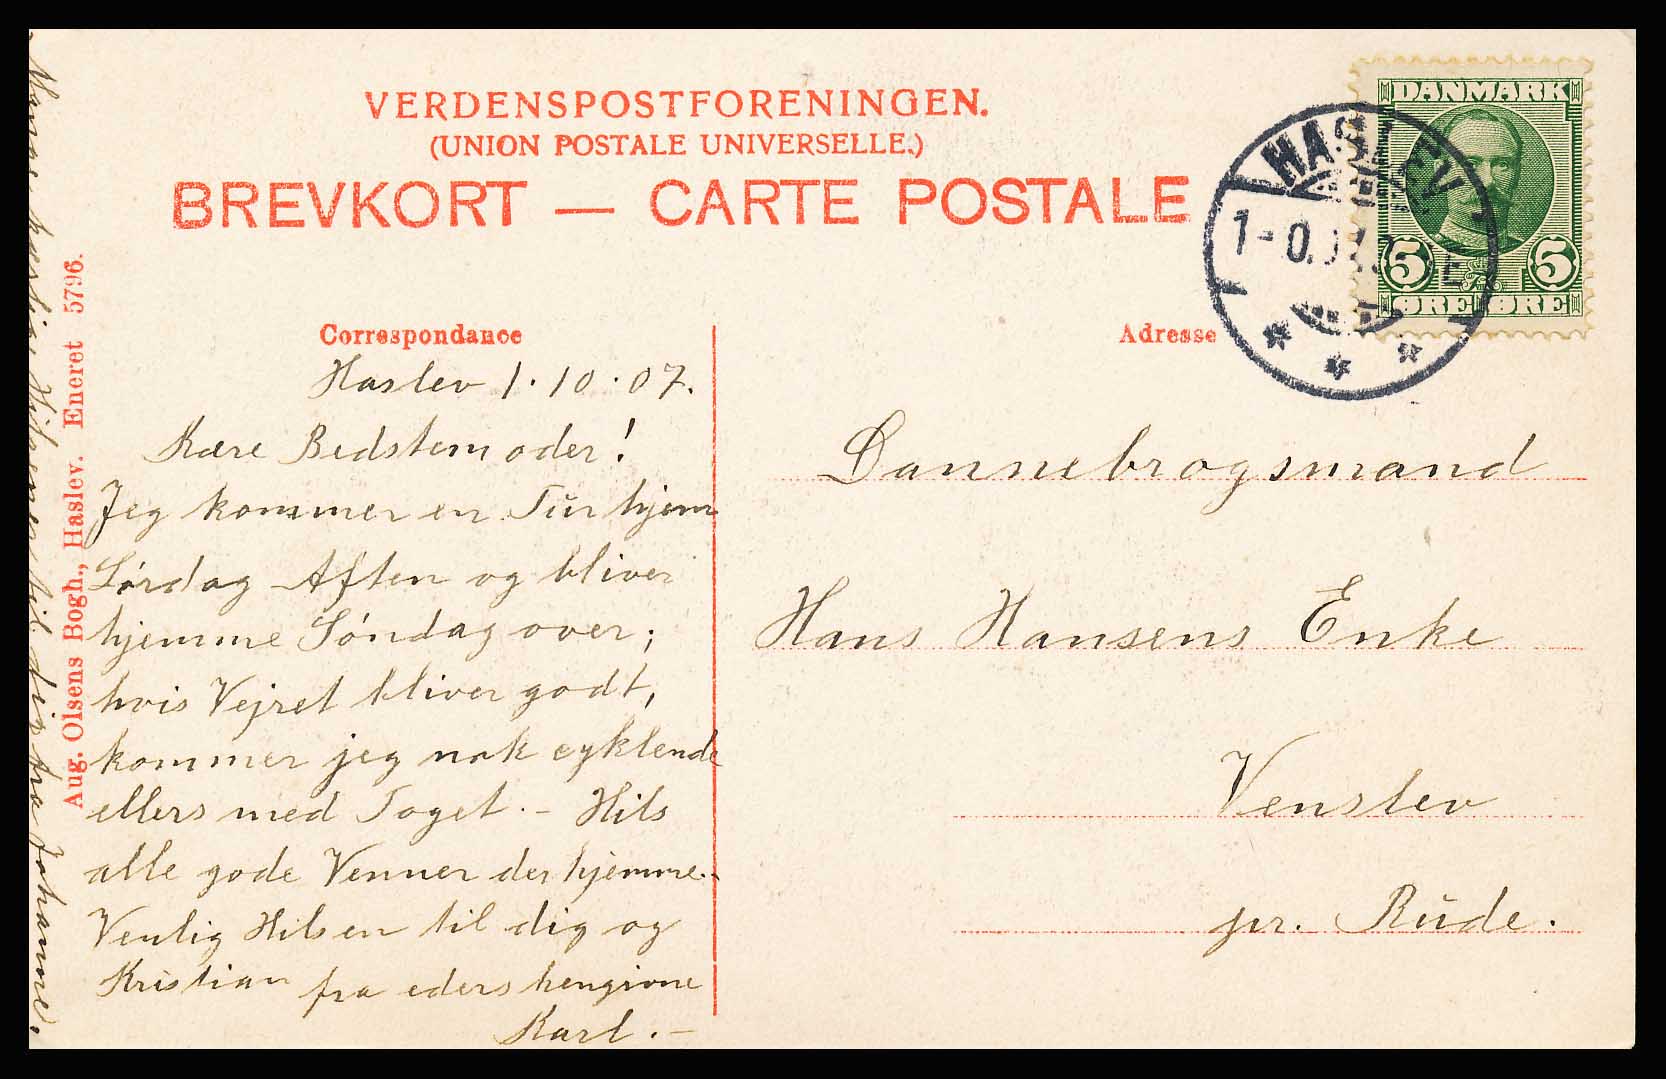 VERDENSPOSTFORENINGEN.
(UNION POSTALE UNIVERSELLE.)
BREVKORT — CARTE POSTALE
DANMARK
5 5
ØRE ØRE
HASLEV
Correspondance
Haslev 1.10.07.
Kære Bedstemoder!
Jeg kommer en Tur hjem
Lørdag Aften og bliver
hjemme Søndag over;
hvis Vejret bliver godt,
kommer jeg nok cyklende
ellers med Toget. - Hils
alle gode Venner der hjemme.
Venlig Hilsen til dig og
Kristian fra eders hengivne
Karl. -
Adresse
Dannebrogsmand
Hans Hansens Enke
Venslev
pr. Rude.
Aug. Olsens Bogh., Haslev. Eneret 5796.
Mange hjertelige Hilsener til dig fra Johanne.